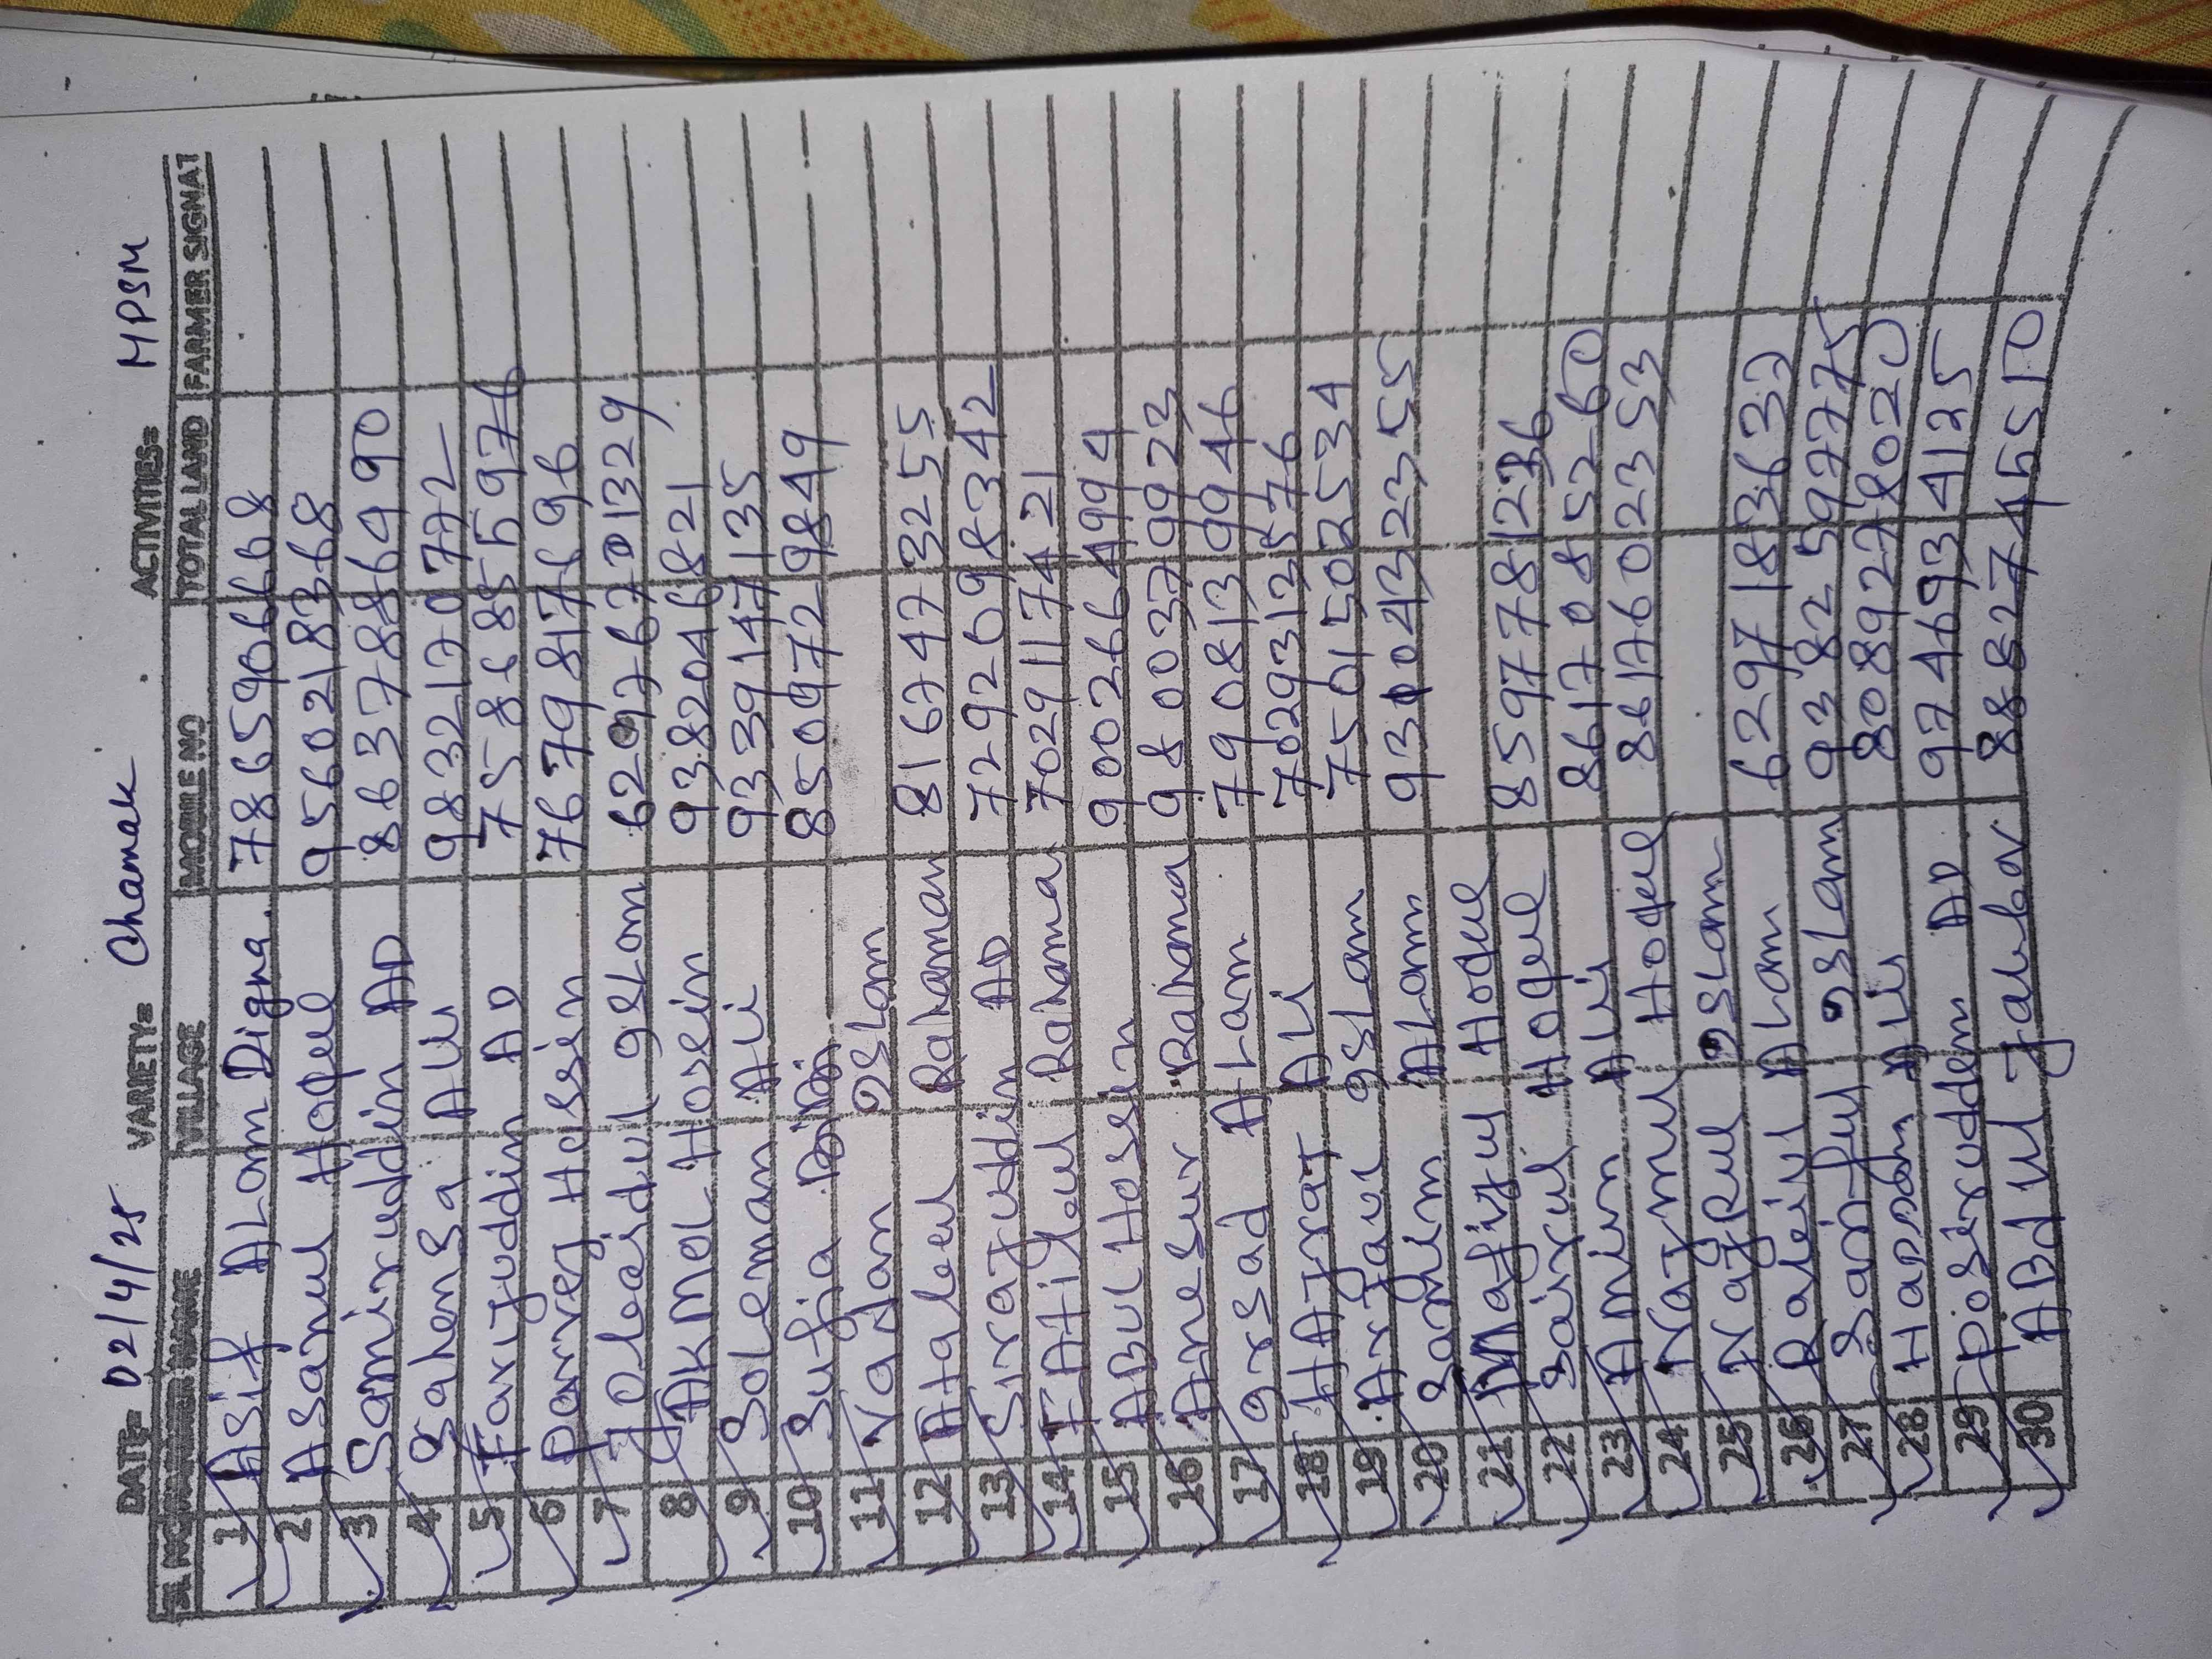 DATE= 02/4/25 VARIETY= Chamak ACTIVITIES= MPSM
SL NO FARMER NAME VILLAGE MOBILE NO TOTAL LAND FARMER SIGNAT
1 Asif ALom Digna 7865906668
2 Asanul Hoque 9560218368
3 Samiruddin AD 8637886490
4 Sahensa Ali 9832170772
5 Farijuddin AD
6 Hossin 7679817696
7 ISLom 62976701329
8 AKMOL Hosein 9382046821
9 Soleman Ali 9339147135
10 Sufia Bibi 8509729849
11 ISLam
12 Rahaman 8167473255
13 Sirajuddin AD 7292698342
14 Rahama 7029117421
15 ABul Hosen 9002664994
16 Anesur Rahama 9800379923
17 Irsad ALam 7908139946
18 HAjrat ALi
19 ISLam 7501502534
20 ALam
21 Mafijul Hoque 8597781236
22 Sairul Hoque 8617085260
23 Amin Ali 8617602353
24 Najmul Hoque
25 ISLam 6297183633
26 ALam 9382597775
27 ISLam 8089278020
28 Hasan Ali 9746934125
29 AD
30 ABdul Jabbar